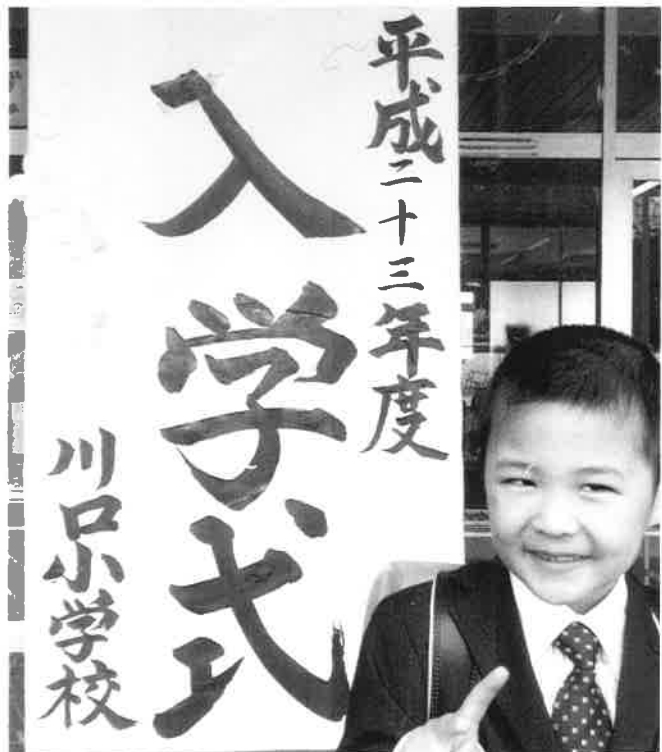 平成二十三年度
入学式
川口小学校